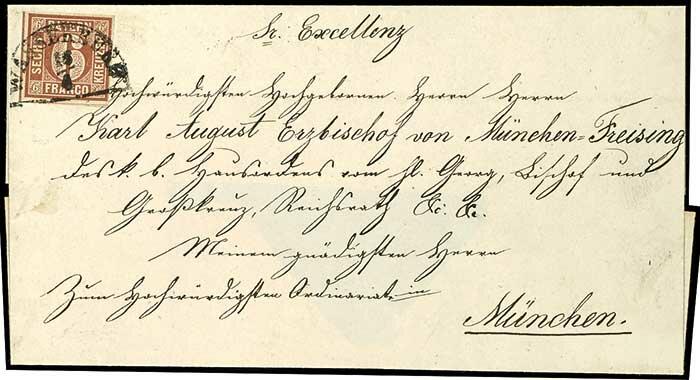 BAYERN
SECHS
KREUZER
FRANCO
6 6
6 6
Sr. Excellenz
Hochwürdigsten Hochgebornen Herrn Herrn
Karl August Erzbischof von München-Freising
des k. b. Hausordens vom hl. Georg, Bischof und
Großkreuz, Reichsrath &c. &c.
Meinem gnädigsten Herrn
Zum Hochwürdigsten Ordinariate in
München.